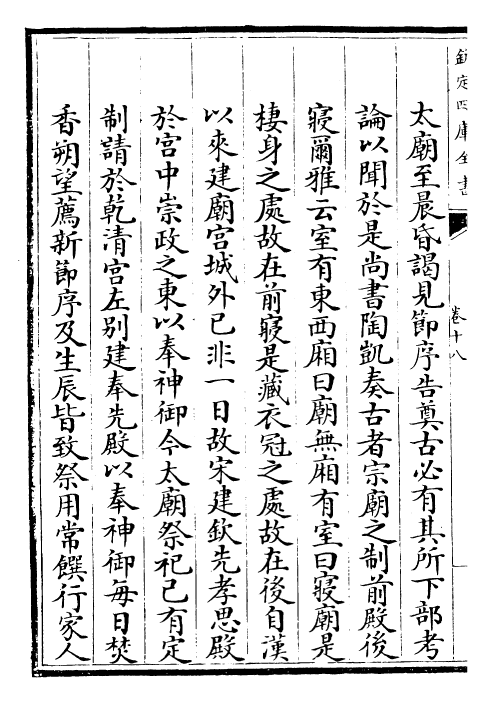 欽定四庫全書
卷十八
太廟至晨昏謁見節序告奠古必有其所下部考
論以聞於是尚書陶凱奏古者宗廟之制前殿後
寢爾雅云室有東西廂曰廟無廂有室曰寢廟是
棲身之處故在前寢是藏衣冠之處故在後自漢
以來建廟宫城外已非一日故宋建欽先孝思殿
於宫中崇政之東以奉神御今太廟祭祀已有定
制請於乾清宫左别建奉先殿以奉神御每日焚
香朔望薦新節序及生辰皆致祭用常饌行家人